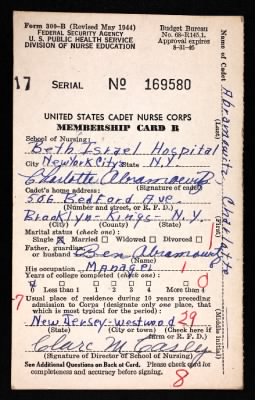 Form 300-B (Revised May 1944)
FEDERAL SECURITY AGENCY
U. S. PUBLIC HEALTH SERVICE
DIVISION OF NURSE EDUCATION
Budget Bureau
No. 68-R145.1.
Approval expires
8-31-45
17 SERIAL No 169580
UNITED STATES CADET NURSE CORPS
MEMBERSHIP CARD B
School of Nursing:
Beth Israel Hospital
City New York City State N.Y.
Charlotte Abramowitz
(Signature of cadet)
Cadet's home address:
506 Bedford Ave.
(Number and street, or R. F. D.)
Brooklyn-Kings-N.Y.
(City) (County) (State)
Marital status (check one):
Single X Married Widowed Divorced 1
Father, guardian,
or husband Ben Abramowitz
(Name)
His occupation Manager 1
Years of college completed (check one):
0 Less than 1 1 2 3 More than 4 0
7 Usual place of residence during 10 years preceding
admission to Corps (designate only one place, that
which is most typical for the period):
New Jersey-westwood 29
(State) (City or town) (Check here if
farm or R. F. D.)
Clare M. Casey
(Signature of Director of School of Nursing)
See Additional Questions on Back of Card. Please check card for
completeness and accuracy before signing.
8
Name of Cadet Abramowitz, Charlotte
(Last) (First) (Middle initial)